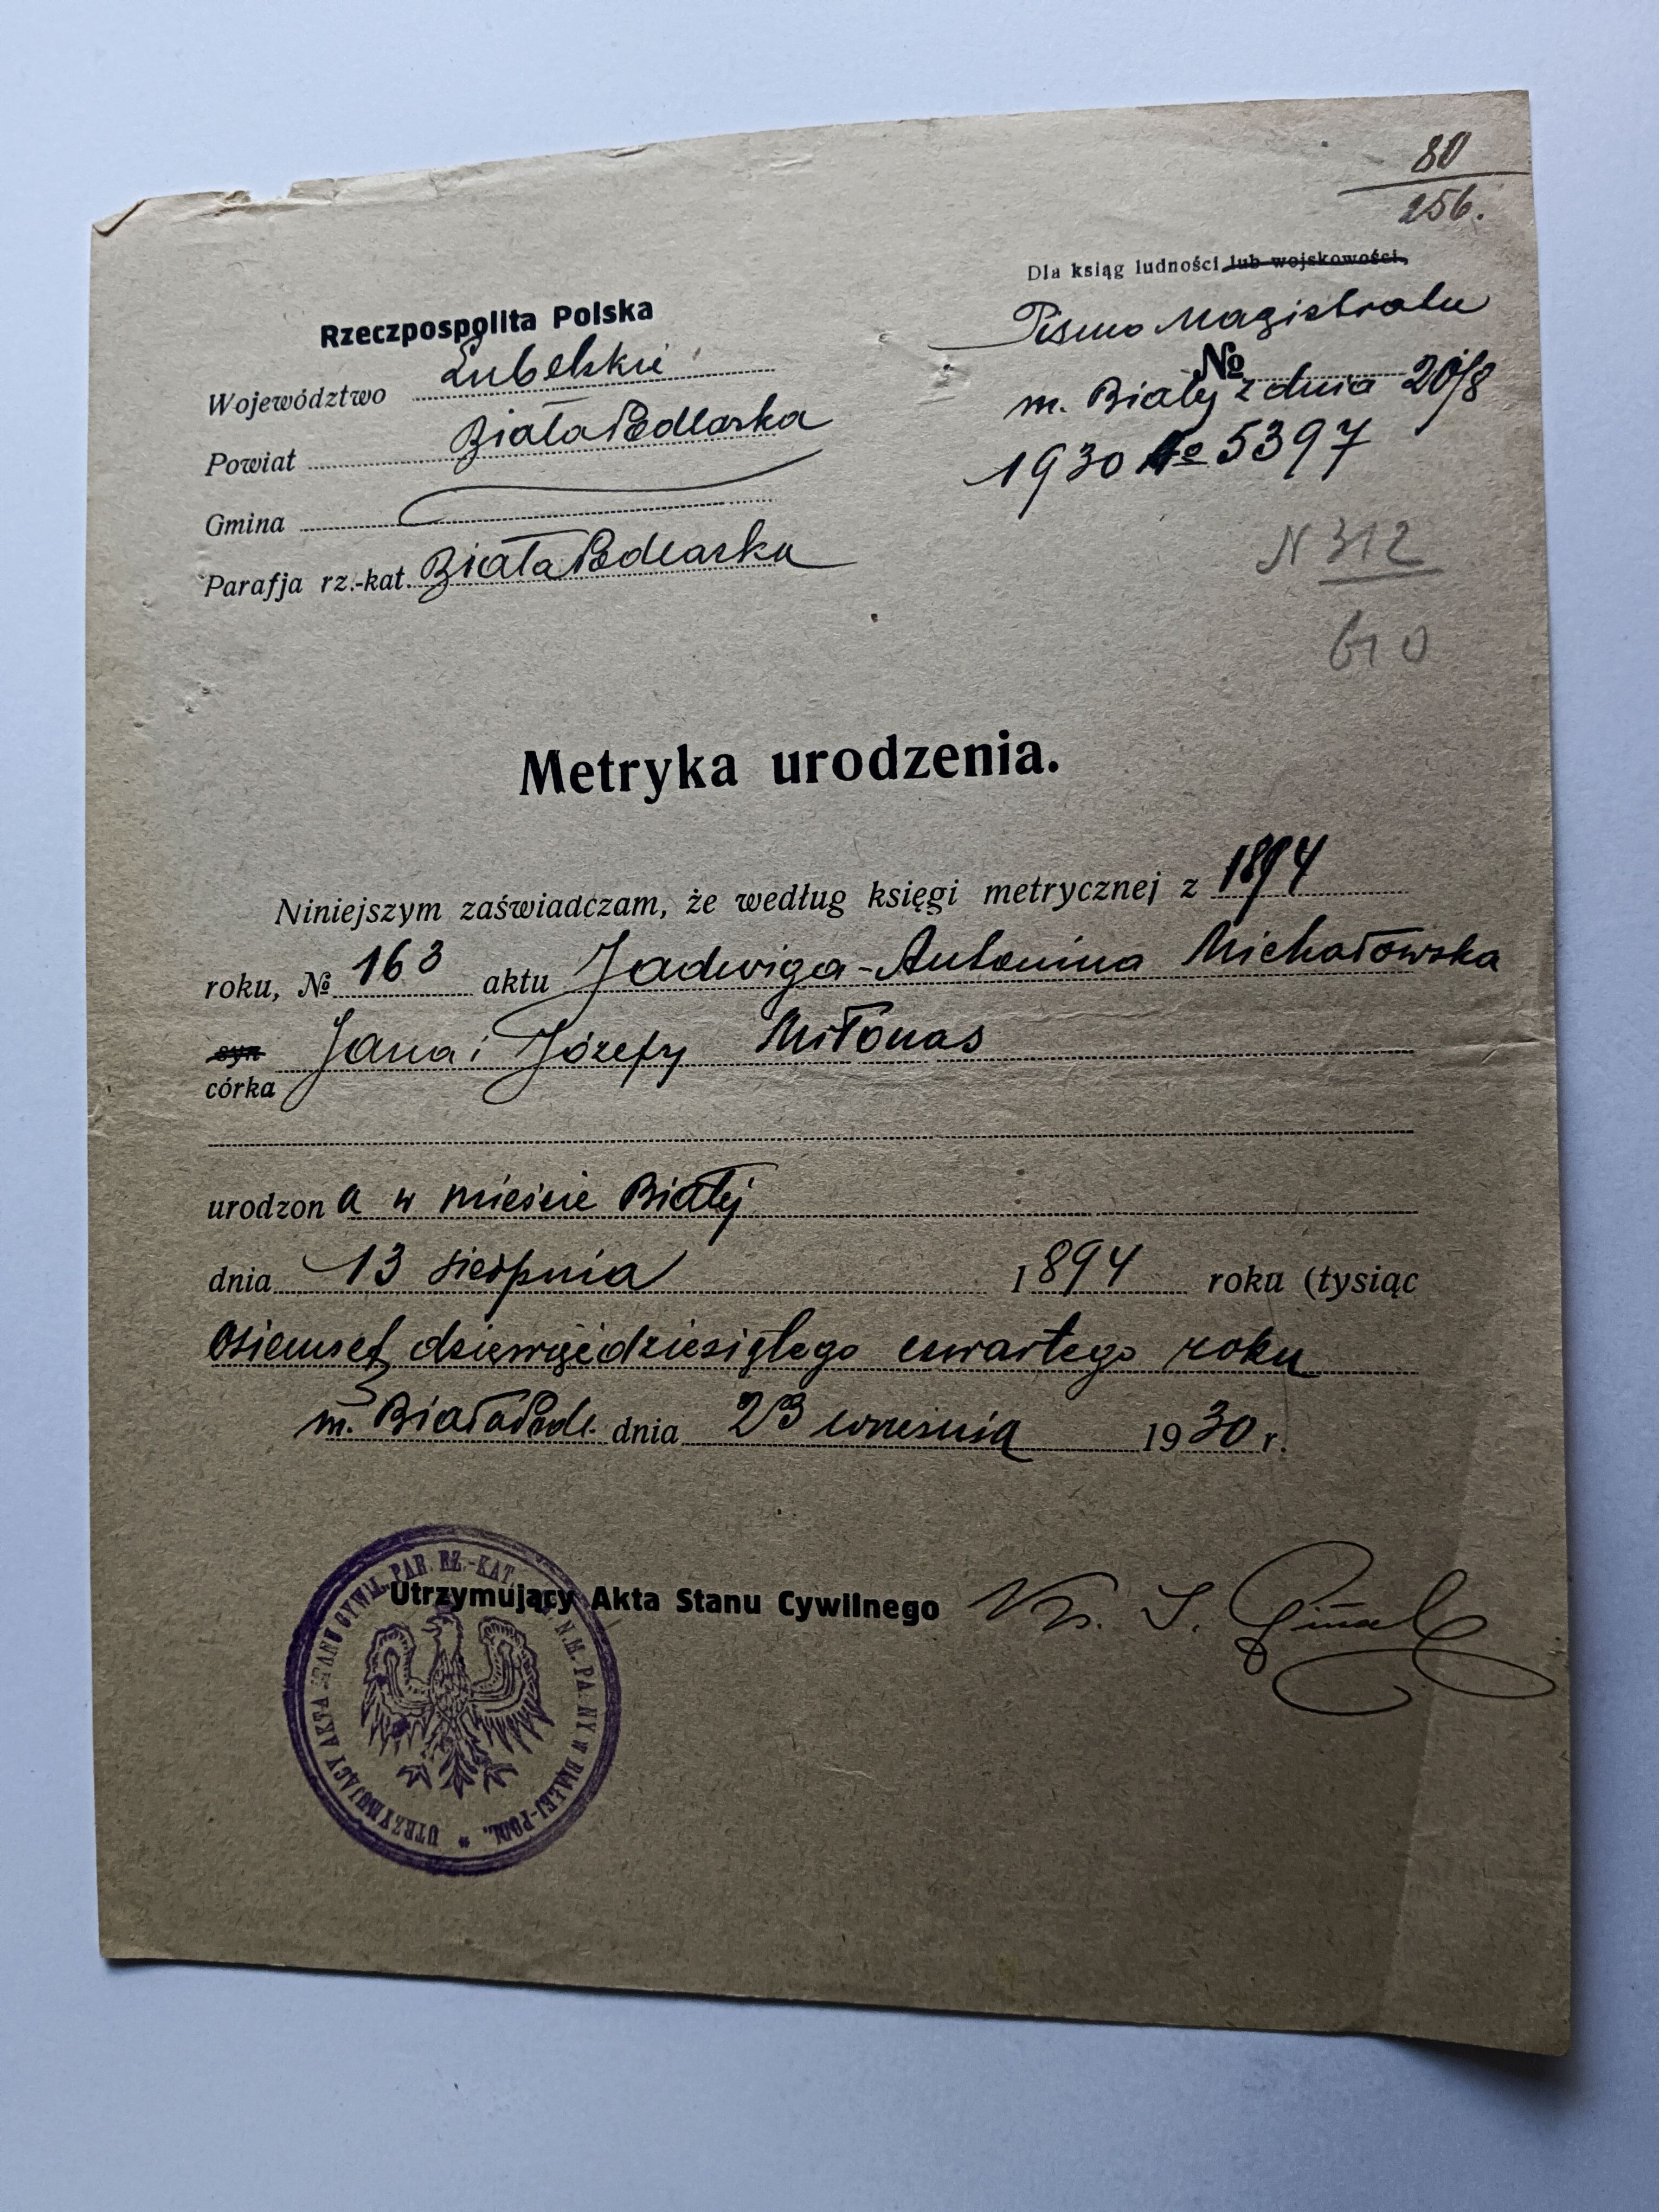 80
256.
Dla ksiąg ludności lub wojskowości,
Pismo Magistratu
№
m. Białej z dnia 20/8
1930 № 5397
N 312
610
Rzeczpospolita Polska
Województwo Lubelskie
Powiat Biała Podlaska
Gmina
Parafja rz.-kat. Biała Podlaska
Metryka urodzenia.
Niniejszym zaświadczam, że według księgi metrycznej z 1894
roku, № 163 aktu Jadwiga-Antonina Michałowska
syn Jana i Józefy Miłonas
córka
urodzona w mieście Białej
dnia 13 sierpnia 1894 roku (tysiąc
osiemset dziewięćdziesiątego czwartego roku
m. Biała Podl. dnia 23 września 1930 r.
Utrzymujący Akta Stanu Cywilnego Ks. S.
UTRZYMUJĄCY AKTA STANU CYWIL. PAR. RZ.-KAT. N. M. PANNY W BIAŁEJ-PODL. *